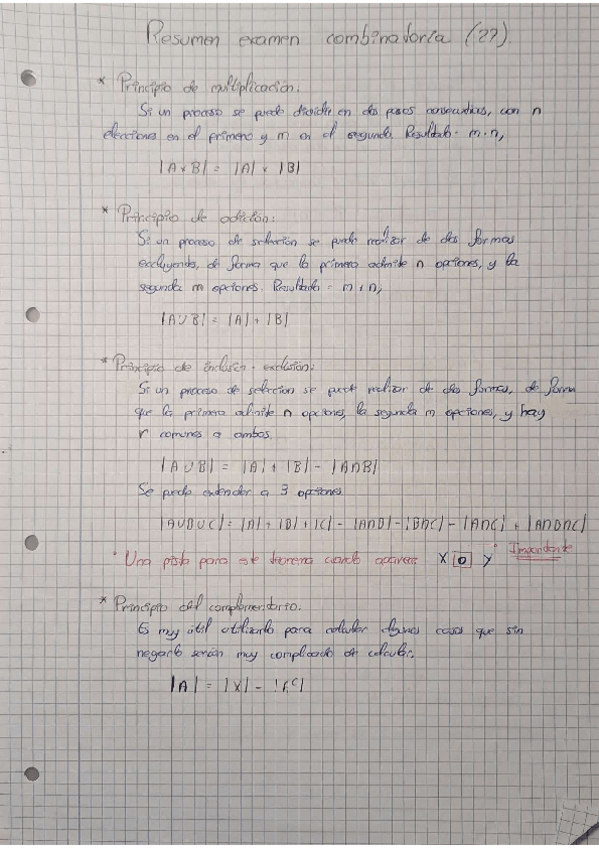 Resumen examen combinatoria (??)
* Principio de multiplicación:
Si un proceso se puede dividir en dos pasos consecutivos, con n
elecciones en el primero y m en el segundo. Resultado = m·n,
|A×B| = |A| × |B|
* Principio de adición:
Si un proceso de selección se puede realizar de dos formas
excluyendo, de forma que la primera admite n opciones, y la
segunda m opciones. Resultado = m+n,
|A∪B| = |A| + |B|
* Principio de inclusión - exclusión:
Si un proceso de selección se puede realizar de dos formas, de forma
que la primera admite n opciones, la segunda m opciones, y hay
r comunes a ambos.
|A∪B| = |A| + |B| - |A∩B|
Se puede extender a 3 opciones
|A∪B∪C| = |A| + |B| + |C| - |A∩B| - |B∩C| - |A∩C| + |A∩B∩C|
* Una pista para este teorema cuando aparece X [O] Y * Importante
* Principio del complementario.
Es muy útil utilizarlo para calcular algunos casos que sin
negarlo serían muy complicado de calcular.
|A| = |X| - |A^C|